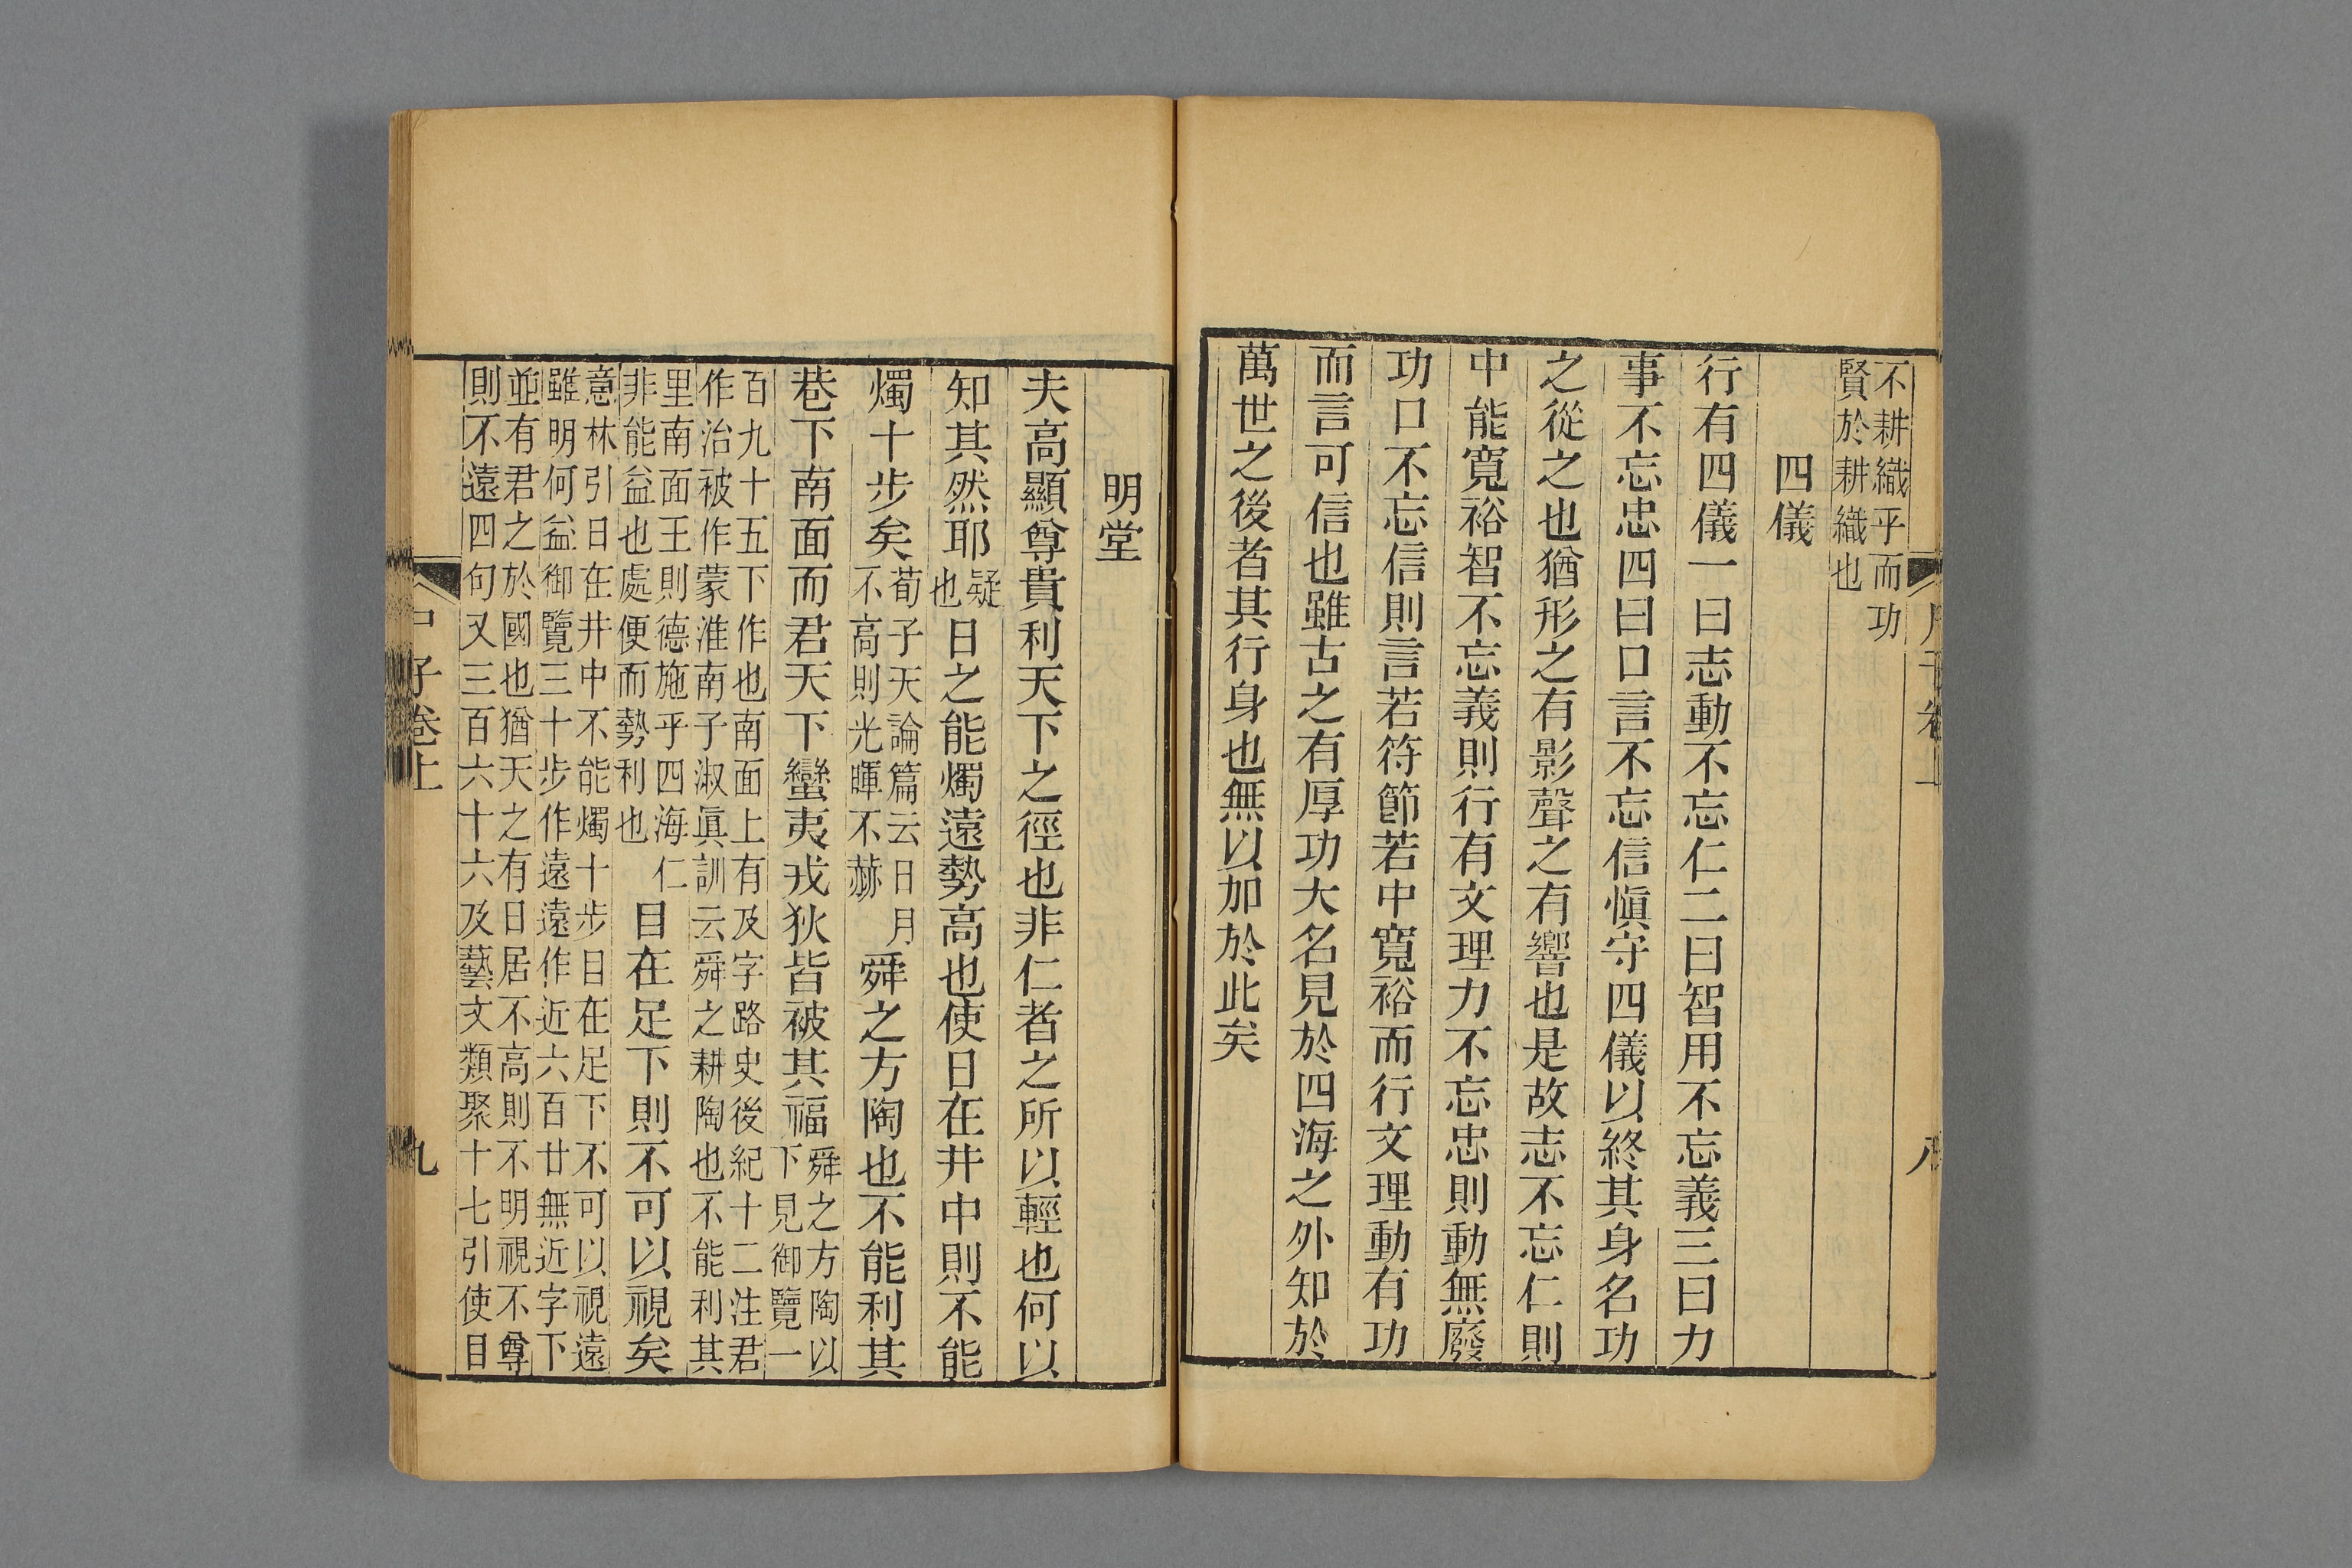 不耕織乎而功
賢於耕織也
四儀
行有四儀一曰志動不忘仁二曰智用不忘義三曰力
事不忘忠四曰口言不忘信愼守四儀以終其身名功
之從之也猶形之有影聲之有響也是故志不忘仁則
中能寬裕智不忘義則行有文理力不忘忠則動無廢
功口不忘信則言若符節若中寬裕而行文理動有功
而言可信也雖古之有厚功大名見於四海之外知於
萬世之後者其行身也無以加於此矣
明堂
夫高顯尊貴利天下之徑也非仁者之所以輕也何以
知其然耶疑也日之能燭遠勢高也使日在井中則不能
燭十步矣荀子天論篇云日月不高則光暉不赫舜之方陶也不能利其
巷下南面而君天下蠻夷戎狄皆被其福舜之方陶以下見御覽一
百九十五下作也南面上有及字路史後紀十二注君
作治被作蒙淮南子淑眞訓云舜之耕陶也不能利其
里南面王則德施乎四海仁
非能益也處便而勢利也
目在足下則不可以視矣
意林引日在井中不能燭十步目在足下不可以視遠
雖明何益御覽三十步作遠遠作近六百廿無近字下
並有君之於國也猶天之有日居不高則不明視不尊
則不遠四句又三百六十六及藝文類聚十七引使目
子卷上
九
八